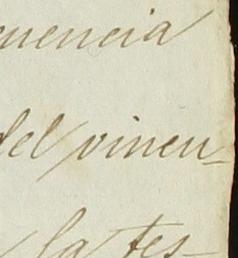 cuencia
del vincu-
la tes-